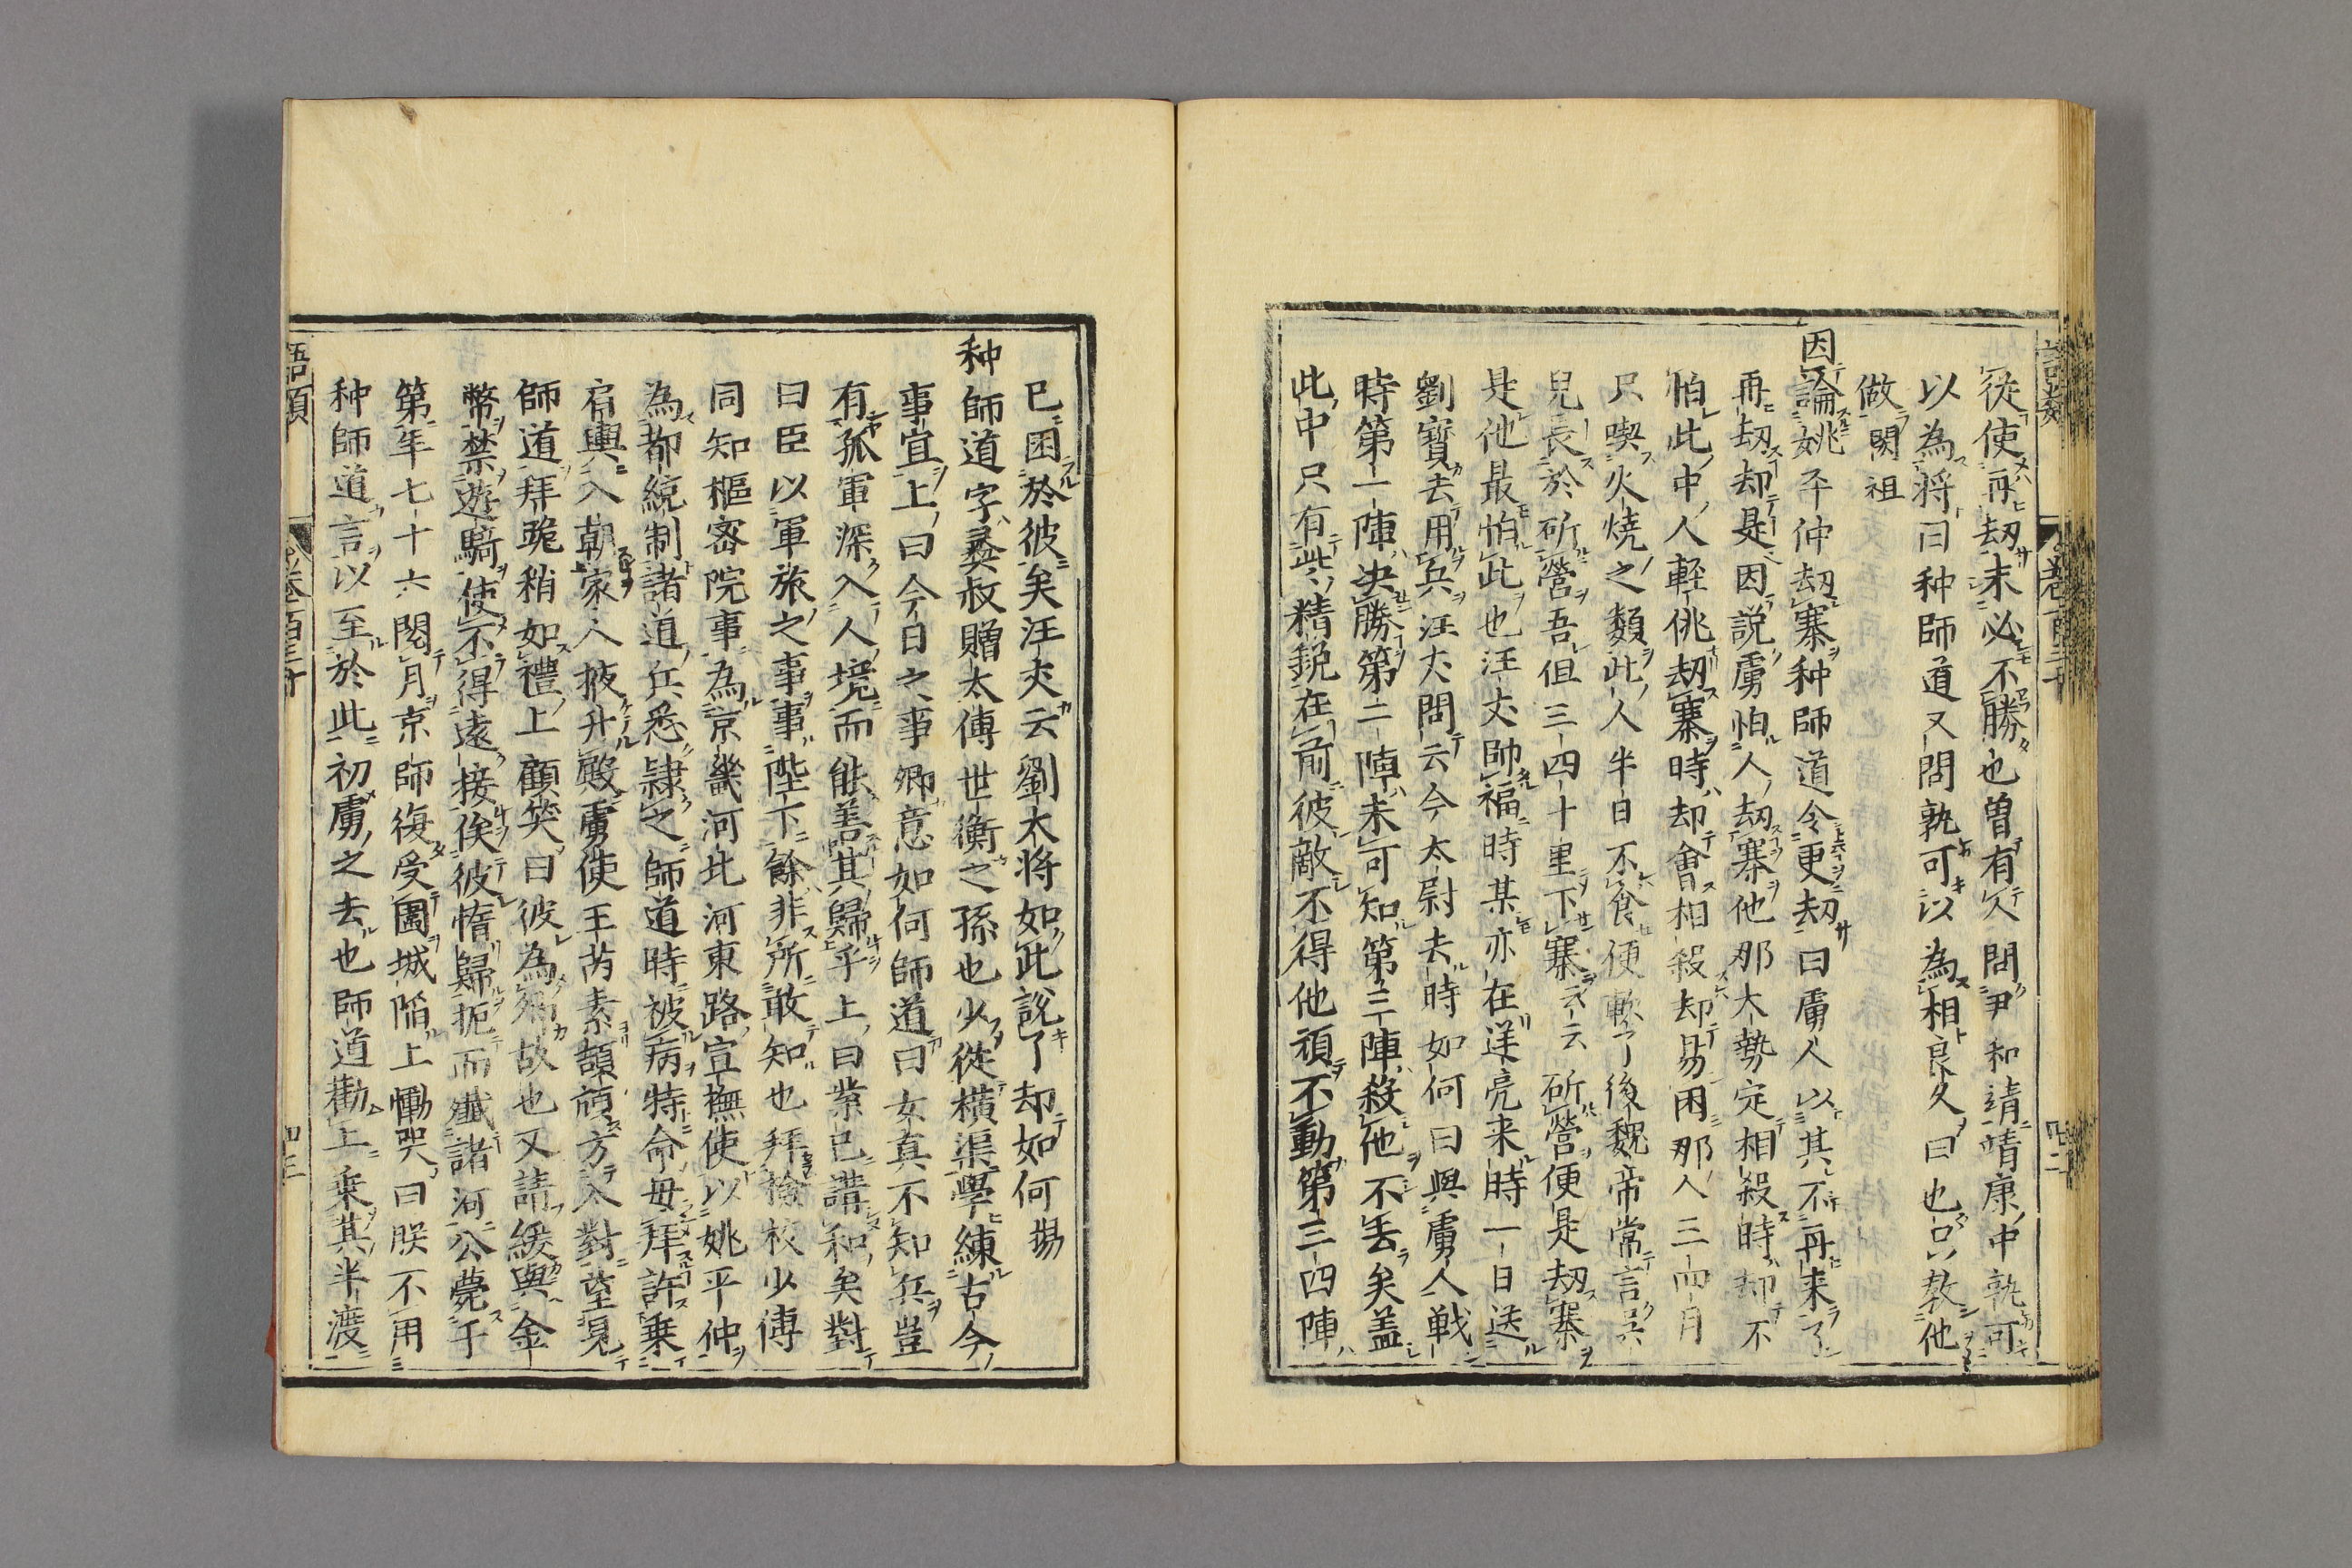 語類 卷一百三十 四十二
從使再刼未必不勝也曽有人問尹和靖靖康中孰可
以為将曰种師道又問孰可以為相良久曰也只教他
做閎祖
因論姚平仲刼寨种師道令更刼曰虜人以其不再来了
再刼却是因説虜怕人刼寨他那大勢定相殺時却不
怕此中人輕佻刼寨時却會相殺却易困那人三四月
只喫火燒之類此人半日不食便軟了後魏帝常言吴
兒長於斫營吾但三四十里下寨云云斫營便是刼寨
是他最怕此也汪丈帥福時某亦在逆亮来時一日送
劉寳去用兵汪丈問云今太尉去時如何曰與虜人戦
時第一陣决勝第二陣未可知第三陣殺他不丢矣盖
此中只有些精鋭在前彼敵不得他頑不動第三四陣
已困於彼矣汪丈云劉太将如此説了却如何昜
种師道字彜叔贈太傅世衡之孫也少從横渠學練古今
事宣上曰今日之事卿意如何師道曰女真不知兵豈
有孤軍深入人境而能善其歸乎上曰業已講和矣對
曰臣以軍旅之事事陛下餘非所敢知也拜檢校少傅
同知樞密院事為京畿河北河東路宣撫使以姚平仲
為都統制諸道兵悉隷之師道時被病特命毋拜許乗
肩輿入朝家人掖升殿虜使王芮素頡頏方入對望見
師道拜跪稍如禮上顧笑曰彼為卿故也又請緩與金
幣禁遊騎使不得遠接俟彼惰歸扼而殲諸河公薨于
第年七十六閲月京師復受圍城陥上慟哭曰朕不用
种師道言以至於此初虜之去也師道勸上乗其半渡
語類 卷一百三十 四十三